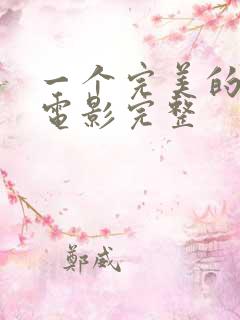 一个完美的
电影完整
鄭威